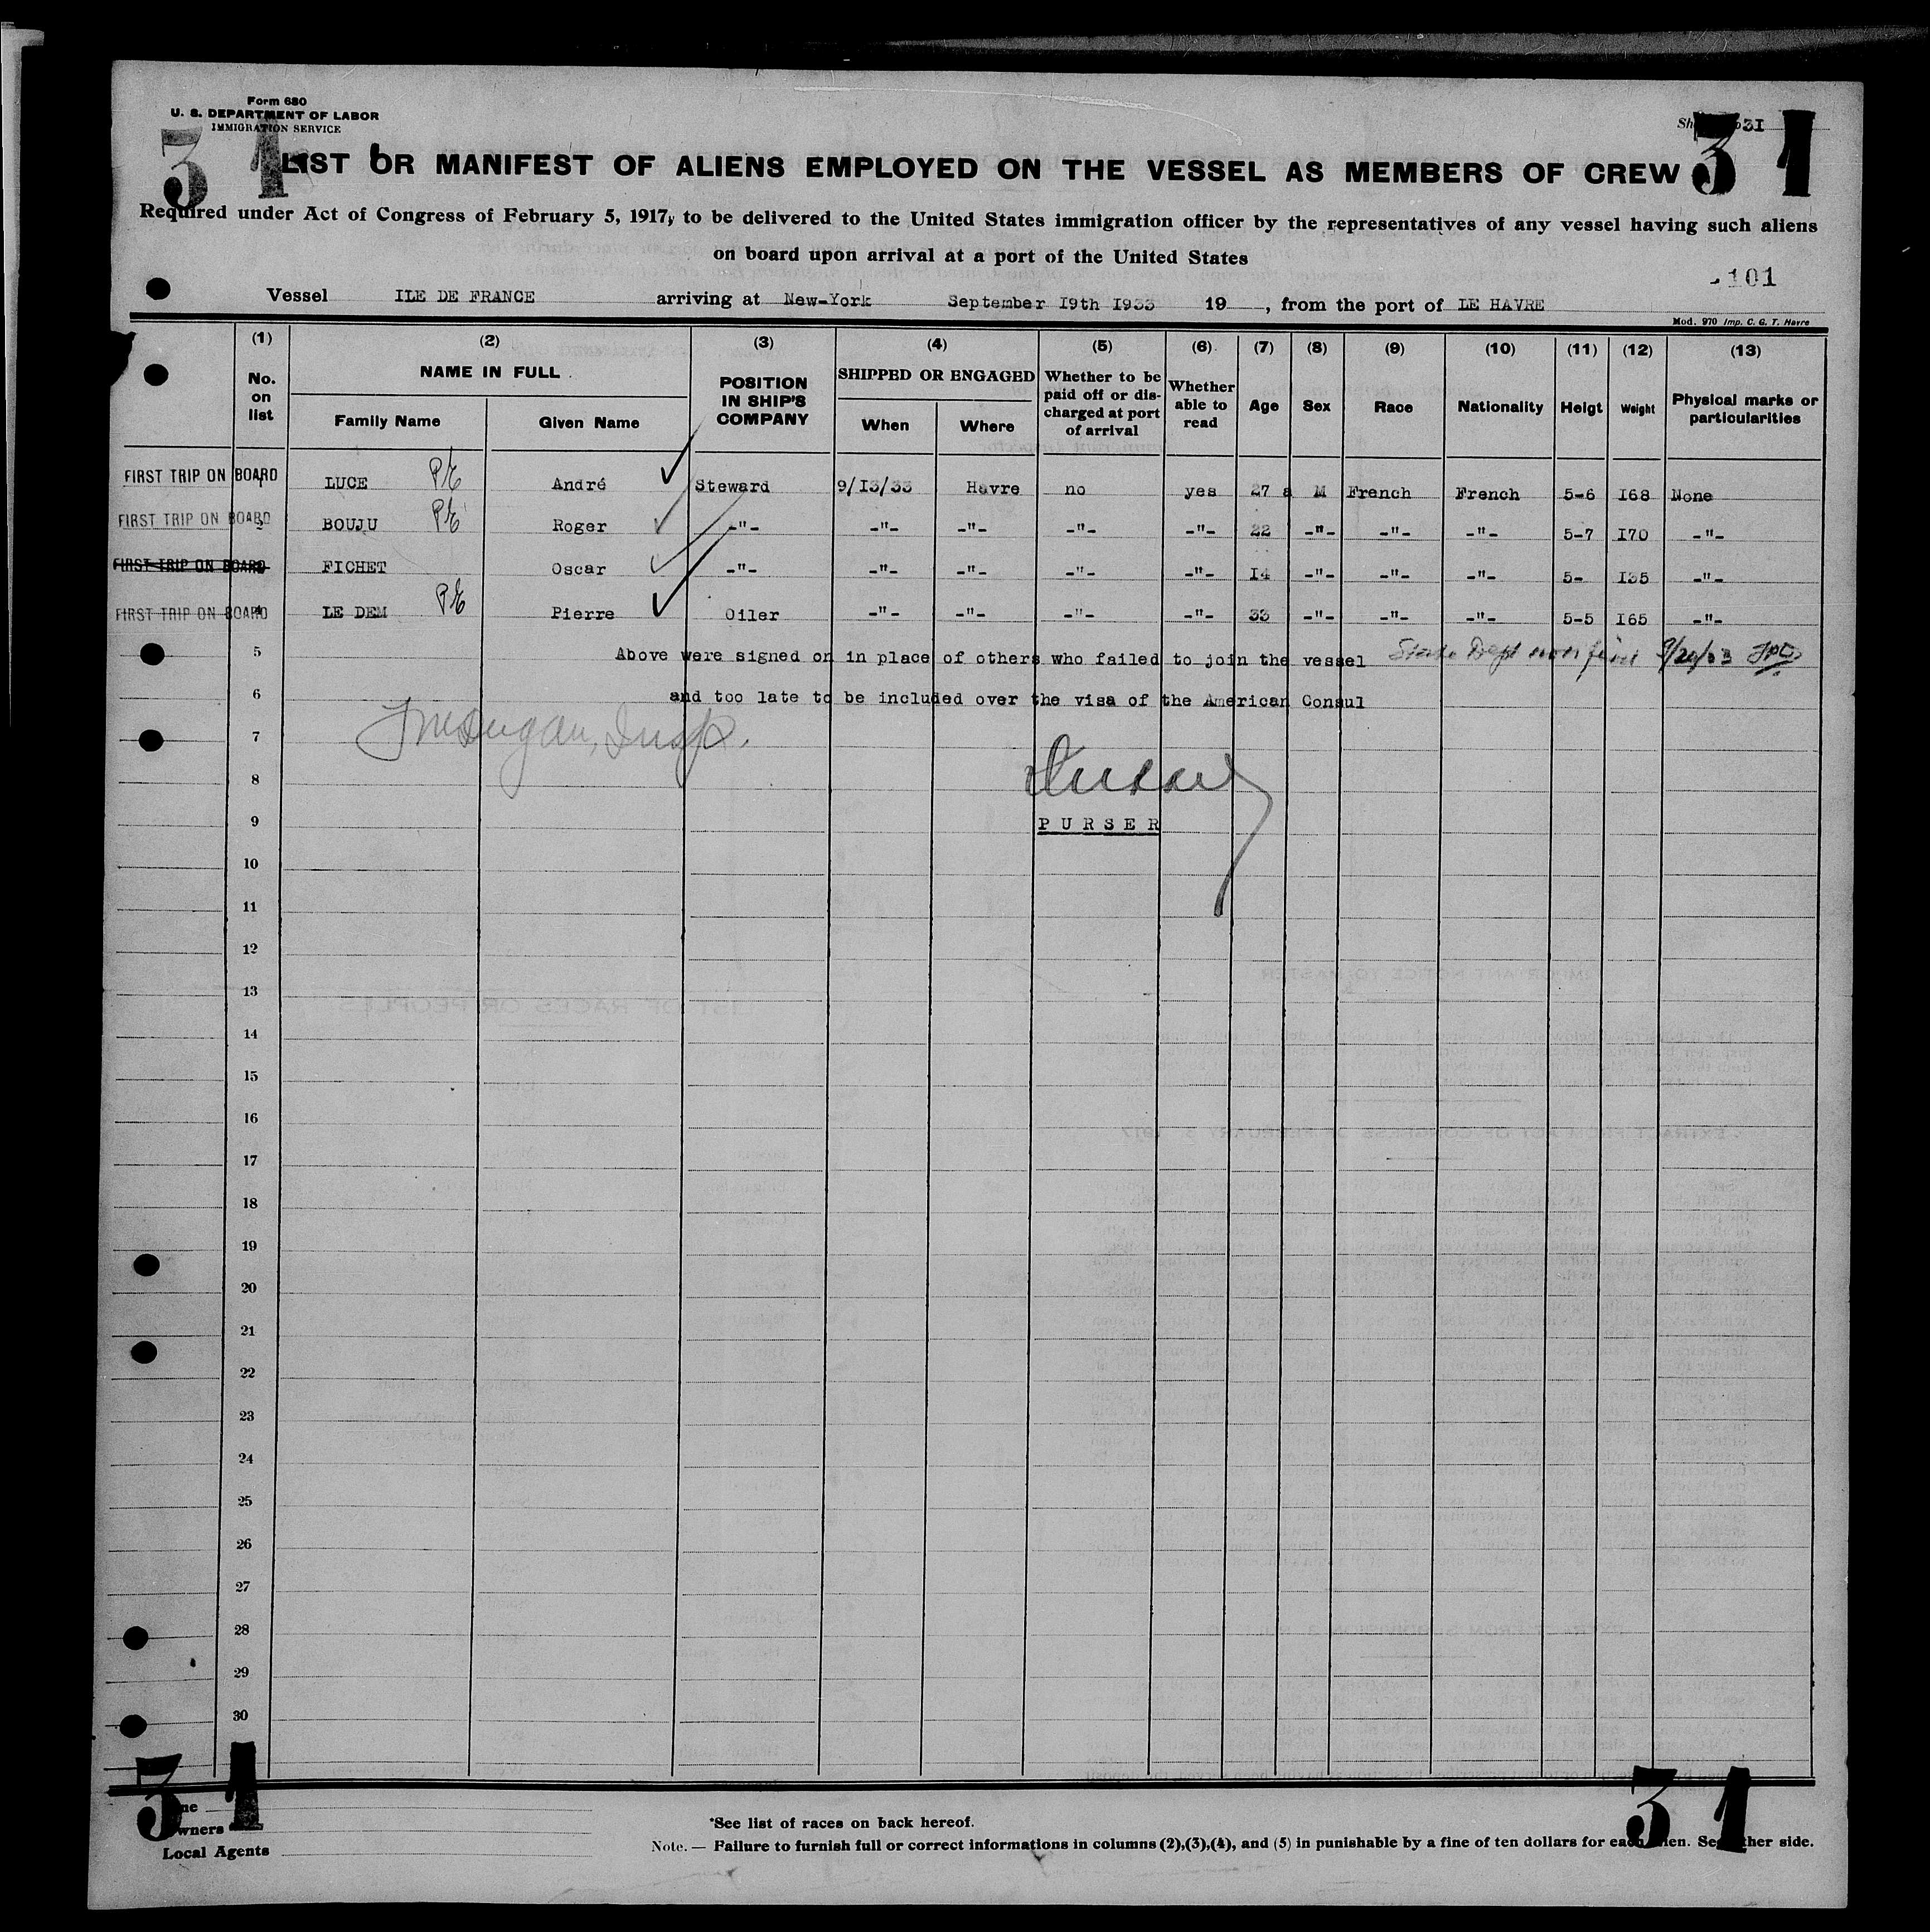 Form 680
U. S. DEPARTMENT OF LABOR
IMMIGRATION SERVICE
31
31
31
LIST OR MANIFEST OF ALIENS EMPLOYED ON THE VESSEL AS MEMBERS OF CREW
Required under Act of Congress of February 5, 1917, to be delivered to the United States immigration officer by the representatives of any vessel having such aliens
on board upon arrival at a port of the United States
101
Vessel ILE DE FRANCE arriving at New-York September 19th 1933 19 , from the port of LE HAVRE
Mod. 970 Imp. C. G. T. Havre
(1) (2) (3) (4) (5) (6) (7) (8) (9) (10) (11) (12) (13)
No. on list NAME IN FULL Family Name Given Name POSITION IN SHIP'S COMPANY SHIPPED OR ENGAGED When Where Whether to be paid off or discharged at port of arrival Whether able to read Age Sex Race Nationality Heigt Weight Physical marks or particularities
FIRST TRIP ON BOARD 1 LUCE André Steward 9/13/33 Havre no yes 27 a M French French 5-6 168 None
FIRST TRIP ON BOARD 2 BOUJU Roger -"- -"- -"- -"- -"- 22 -"- -"- -"- 5-7 170 -"-
FIRST TRIP ON BOARD FICHET Oscar -"- -"- -"- -"- -"- 14 -"- -"- -"- 5- 135 -"-
FIRST TRIP ON BOARD 4 LE DEM Pierre Oiler -"- -"- -"- -"- 33 -"- -"- -"- 5-5 165 -"-
5 Above were signed on in place of others who failed to join the vessel State Dept
6 and too late to be included over the visa of the American Consul
7
8
9 PURSER
10
11
12
13
14
15
16
17
18
19
20
21
22
23
24
25
26
27
28
29
30
31
31
Owners
Local Agents
*See list of races on back hereof.
Note. — Failure to furnish full or correct informations in columns (2),(3),(4), and (5) in punishable by a fine of ten dollars for each alien. See other side.